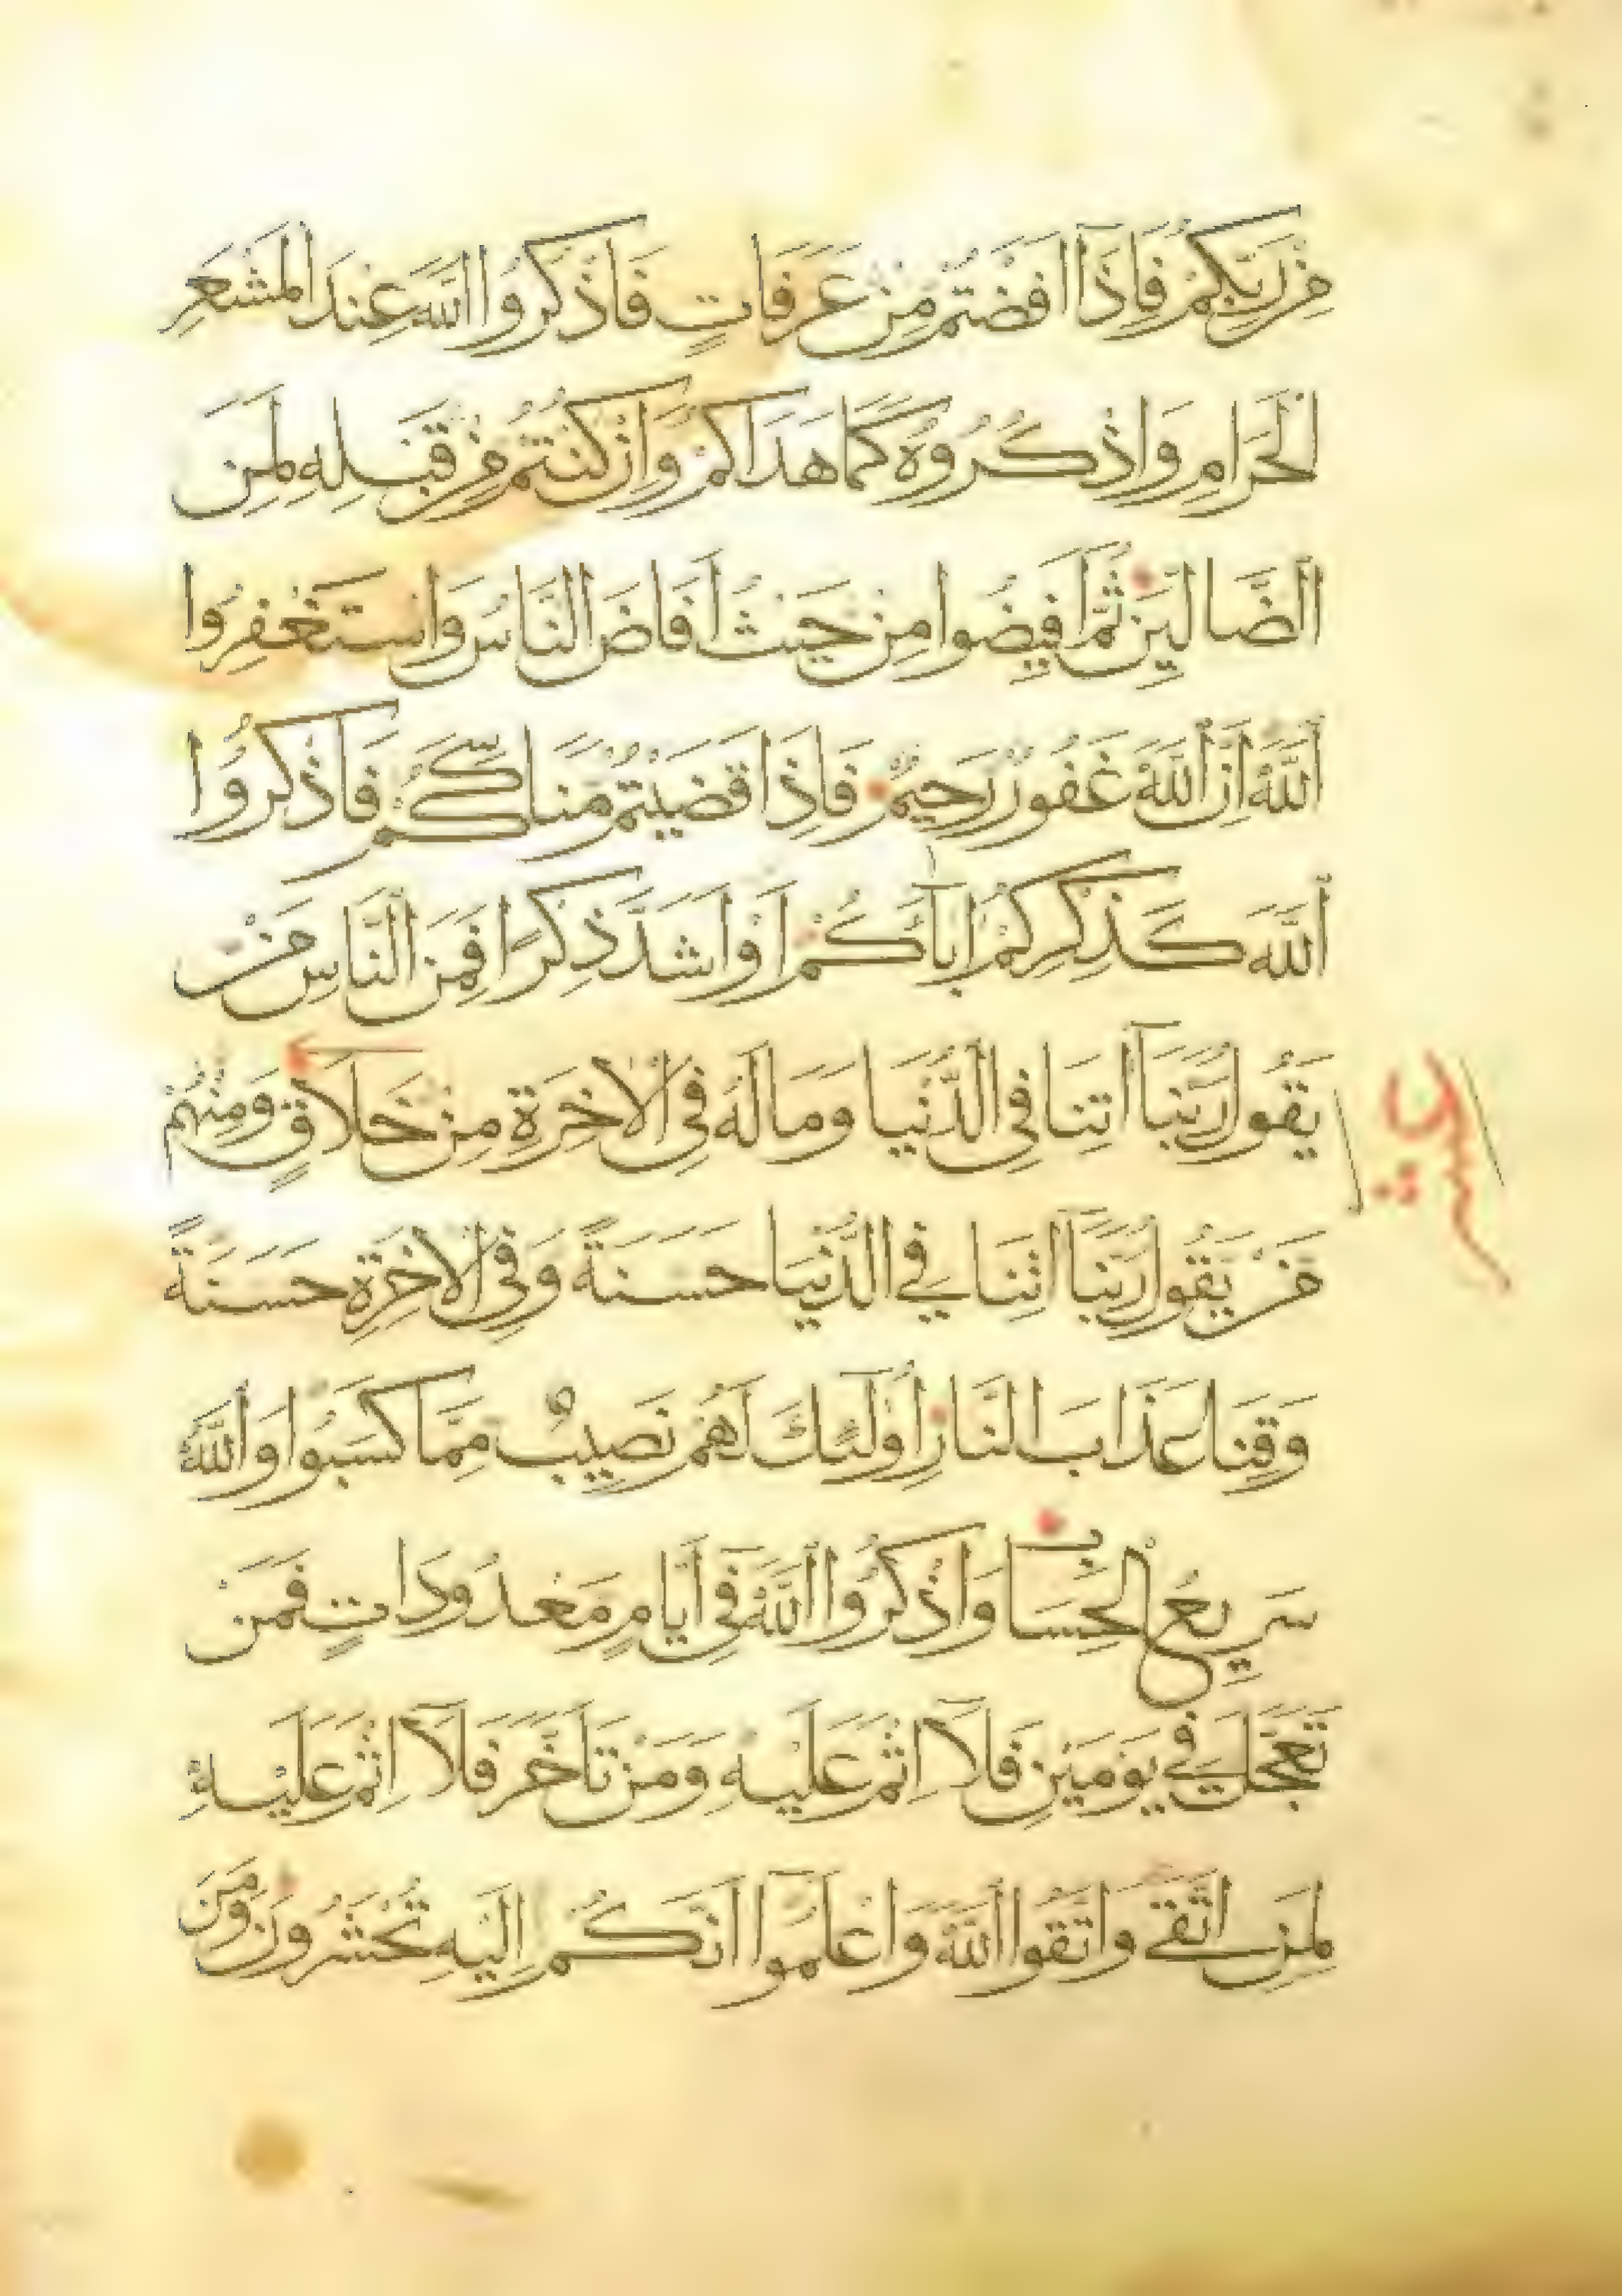 مِنْ رَبِّكُمْ فَاِذَا اَفَضْتُمْ مِنْ عَرَفَاتٍ فَاذْكُرُوا اللّٰهَ عِنْدَ الْمَشْعَرِ
الْحَرَامِ وَاذْكُرُوهُ كَمَا هَدَاكُمْ وَاِنْ كُنْتُمْ مِنْ قَبْلِهِ لَمِنَ
الضَّالِّينَ ثُمَّ اَفِيضُوا مِنْ حَيْثُ اَفَاضَ النَّاسُ وَاسْتَغْفِرُوا
اللّٰهَ اِنَّ اللّٰهَ غَفُورٌ رَحِيمٌ فَاِذَا قَضَيْتُمْ مَنَاسِكَكُمْ فَاذْكُرُوا
اللّٰهَ كَذِكْرِكُمْ اٰبَآءَكُمْ اَوْ اَشَدَّ ذِكْرًا فَمِنَ النَّاسِ مَنْ
يَقُولُ رَبَّنَآ اٰتِنَا فِي الدُّنْيَا وَمَا لَهُ فِي الْاٰخِرَةِ مِنْ خَلَاقٍ وَمِنْهُمْ
مَنْ يَقُولُ رَبَّنَآ اٰتِنَا فِي الدُّنْيَا حَسَنَةً وَفِي الْاٰخِرَةِ حَسَنَةً
وَقِنَا عَذَابَ النَّارِ اُولٰٓئِكَ لَهُمْ نَصِيبٌ مِمَّا كَسَبُوا وَاللّٰهُ
سَرِيعُ الْحِسَابِ وَاذْكُرُوا اللّٰهَ فِيٓ اَيَّامٍ مَعْدُودَاتٍ فَمَنْ
تَعَجَّلَ فِي يَوْمَيْنِ فَلَآ اِثْمَ عَلَيْهِ وَمَنْ تَاَخَّرَ فَلَآ اِثْمَ عَلَيْهِ
لِمَنِ اتَّقٰى وَاتَّقُوا اللّٰهَ وَاعْلَمُوٓا اَنَّكُمْ اِلَيْهِ تُحْشَرُونَ وَمِنَ